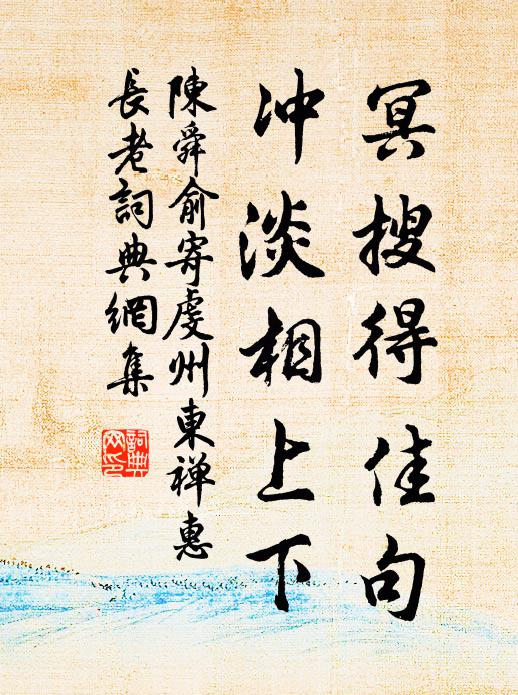 冥搜得佳句
冲淡相上下
陳舜俞寄虔州東禅惠
長老詞典網集
詞典